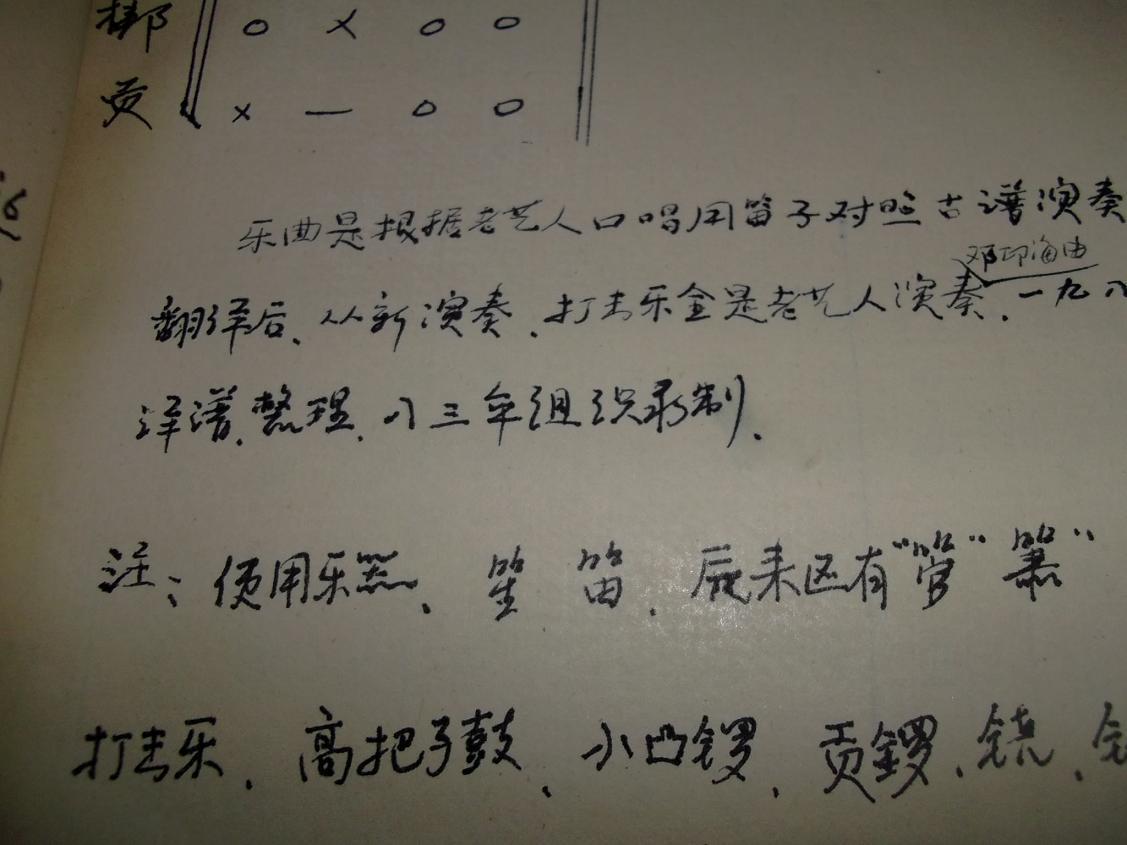 梆 ‖ o × o o ‖
贡 ‖ × — o o ‖
乐曲是根据老艺人口唱用笛子对照古谱演奏
邓印海由
翻译后、从新演奏、打击乐全是老艺人演奏、一九八
译谱、整理、八三年组织录制、
注、使用乐器、笙 笛、原来还有"管" 箫"
打击乐、高把手鼓、小凸锣、贡锣、铙、